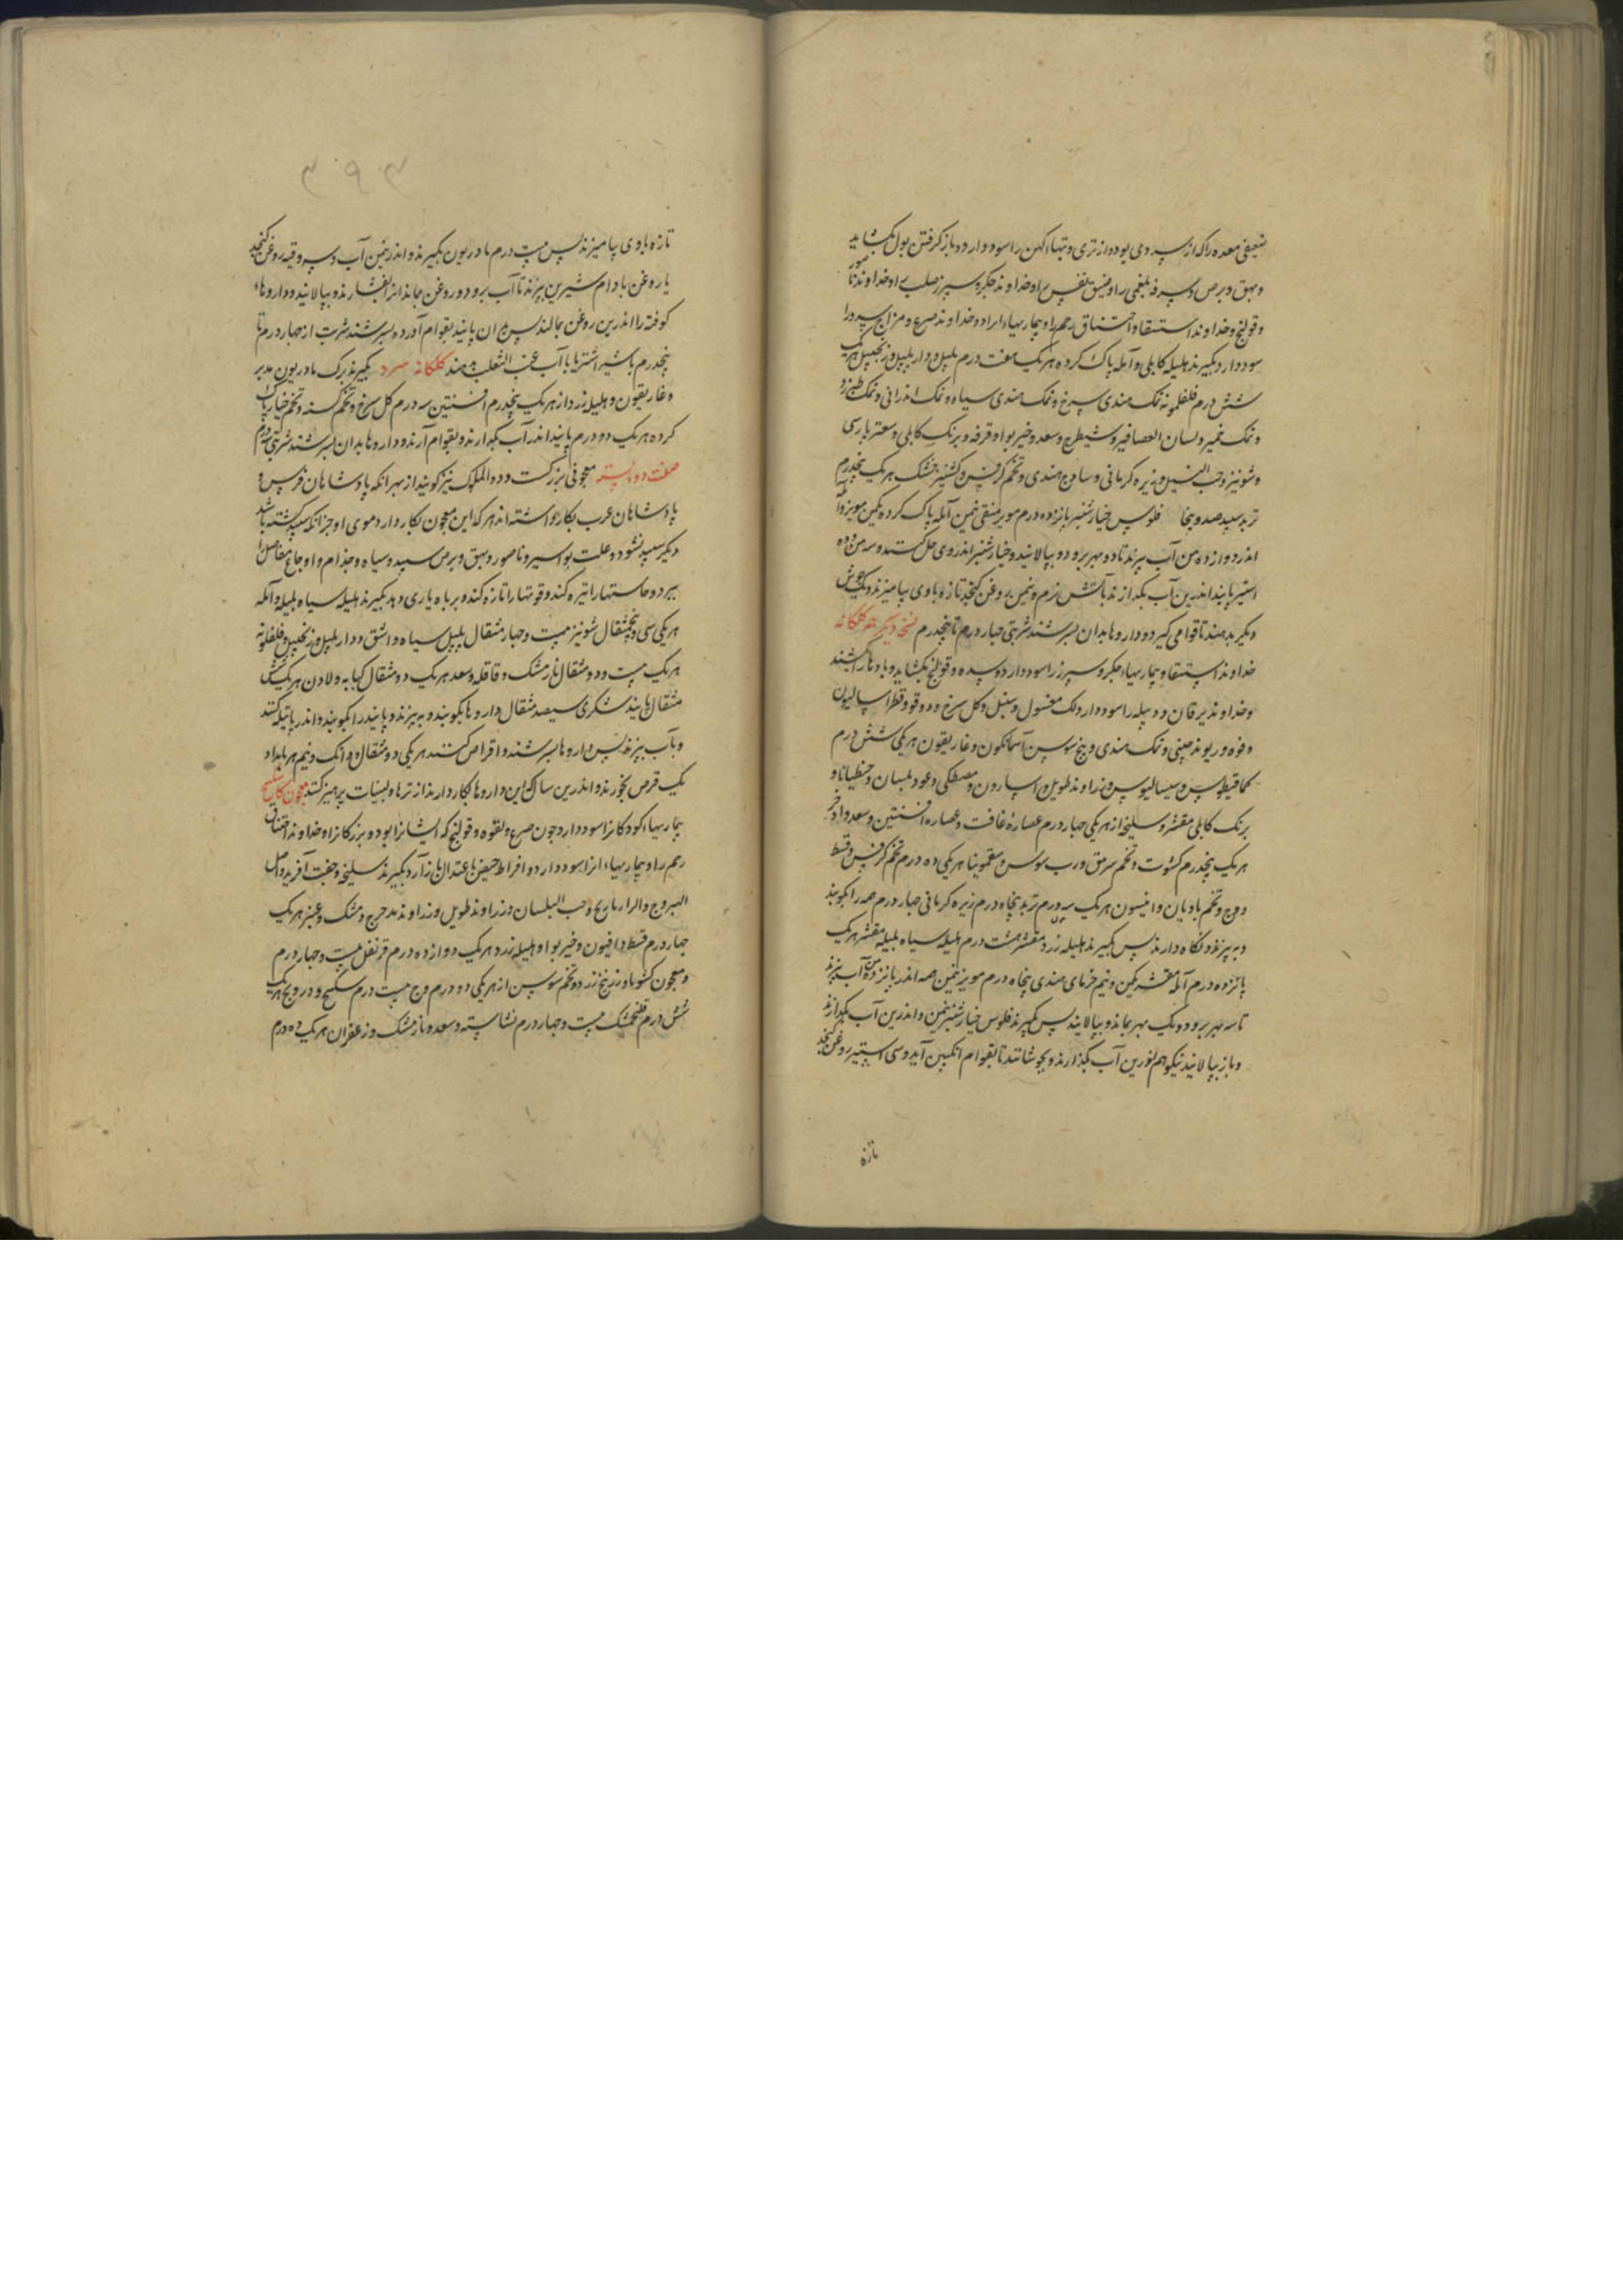 ضعیفی معده را که از سردی بود و از تری و تبهاء کهن را سود دارد و باز کرفتن بول بکشاید
و بهق و برص و سرفه بلغمی را و ضیق نفس را و خداوند جکر و سپرز صلب را و خداوند ناصور
و قولنج و خداوند استسقا و اختناق رحم را و بیماریهاء را و خداوند صرع و مزاج سرد را
سود دارد بکیرند هلیله کابلی و آمله پاک کرده هر یک هفت درم پلپل و دارپلپل و زنجبیل هر یک
شش درم فلفلمونه نمک هندی سرخ و نمک هندی سیاه و نمک اندرانی و نمک طبرزد
و نمک خمیر و لسان العصافیر و شیطرج و سعد و خیربوا و قرفه و برنک کابلی و سعتر پارسی
و شونیز و حب النیل و زیره کرمانی و سادج هندی و تخم کرفس و کشنیز خشک هر یک پنجدرم
تربد سپید صد و پنجاه فلوس خیارشنبر پانزده درم مویز منقی نیمن آمله پاک کرده یکمن مویز و آمله را
اندر دوازده من آب بپزند تا دو بهر برود و بپالایند و خیارشنبر اندر وی حل کنند و سه من و ده
استیر پانید اندرین آب بکدازند بآتش نرم و نیمن روغن کنجد تازه باوی بیامیزند و یک جوش
دیکر بدهند تا قوامی کیرد و داروها بدان بسرشند شربتی چهار درم تا پنجدرم نسخه دیکر هم کلکانه
خداوند استسقا و بیماریهاء جکر و سپرز را سود دارد و سده و قولنج بکشاید و بادها را بشکند
و خداوند یرقان و دبیله را سود دارد لک مغسول و سنبل و کل سرخ و دوقو و قطراسالیون
و فوه و ریوند چینی و نمک هندی و بیخ سوسن آسمانکون و غاریقون هر یکی شش درم
کمافیطوس و سیسالیوس و زراوند طویل و اسارون و مصطکی و عود بلسان و جنطیانا و
برنک کابلی مقشر و سلیخه از هر یکی چهار درم عصاره غافت و عصاره افسنتین و سعد و اذخر
هر یک پنجدرم کشوت و تخم سرمق و رب سوس و سقمونیا هر یکی ده درم تخم کرفس و قسط
و وج و تخم بادیان و انیسون هر یک سه درم تربد پنجاه درم زیره کرمانی چهار درم همه را بکوبند
و بپزند و نکاه دارند پس بکیرند هلیله زرد مقشر هشت درم هلیله سیاه بلیله مقشر هر یک
پانزده درم آمله مقشر یکمن و نیم خرمای هندی پنجاه درم مویز نیمن همه اندر پانزده من آب بپزند
تا سه بهر برود و یک بهر بماند و بپالایند پس بکیرند فلوس خیارشنبر نیمن و اندرین آب بکدازند
و باز بپالایند نیکو هم اندرین آب بکذارند و بجوشانند تا بقوام انکبین آید و سی استیر روغن کنجد
تازه
۳۹۳
تازه باوی بیامیزند پس بیست درم مادریون بکیرند و اندر نیمن آب و سه وقیه روغن کنجد
یا روغن بادام شیرین بپزند تا آب برود و روغن بماند انرا بفشارند و بپالایند و داروهاء
کوفته را اندرین روغن بمالند پس بدان پانید بقوام آورده بسرشند شربت از چهار درم تا
پنجدرم با شیر اشتر یا با آب عنب الثعلب دهند کلکانه سرد بکیرند برک مادریون مدبر
و غاریقون و هلیله زرد از هر یک پنجدرم افسنتین سه درم کل سرخ و تخم کسنه و تخم خیار پاک
کرده هر یک دو درم پانید اندر آب بکدازند و بقوام آرند و داروها بدان بسرشند شربتی سه درم
صفت دواء معجونی بزرکست و دواء الملوک نیز کویند از بهر انکه پادشاهان فرس و
پادشاهان عرب بکار داشته اند هر که این معجون بکار دارد موی او جز انکه سپید کشته باشد
دیکر سپید نشود و علت بواسیر و ناصور و بهق و برص سپید و سیاه و جذام و اوجاع مفاصل را
ببرد و حاستها را تیره کند و قوتها را تازه کند و بر باه یاری دهد بکیرند هلیله سیاه بلیله و آمله
هر یکی سی و پنج مثقال شونیز بیست و چهار مثقال پلپل سیاه و اشق و دارپلپل و زنجبیل و فلفلمونه
هر یک بیست و دو مثقال نارمشک و قاقله و سعد هر یک دو مثقال کبابه و لادن هر یک شش
مثقال پانید شکری سیصد مثقال داروها بکوبند و بپزند و پانید را بکوبند و اندر پاتیله کنند
و بآب بپزند پس داروها بسرشند و اقراص کنند هر یکی دو مثقال و دانک و نیم هر بامداد
یک قرص بخورند و اندرین سال که این داروها بکار دارند از ترها و لبنیات پرهیز کنند معجون کاسکبینج
بیماریهاء کودکانرا سود دارد چون صرع و لقوه و قولنج که ایشانرا بود و بزرکانرا و خداوند اختناق
رحم را و بیماریهاء انرا سود دارد و افراط حیض باعتدال باز آرد بکیرند سلیخه و جفت آفرید و اصل
الیبروج و الرازیانج و حب البلسان و زراوند طویل و زراوند مدحرج و مشک و عنبر هر یک
چهار درم قسط و افیون و خیربوا و هلیله زرد هر یک دوازده درم قرنفل بیست و چهار درم
و معجون کشوبا و زرنیخ زرد و تخم سوسن از هر یکی دو درم وج بیست درم سکبینج و درونج هر یک
شش درم فلنجمشک بیست و چهار درم نشاسته و سعد و نارمشک و زعفران هر یک ده درم